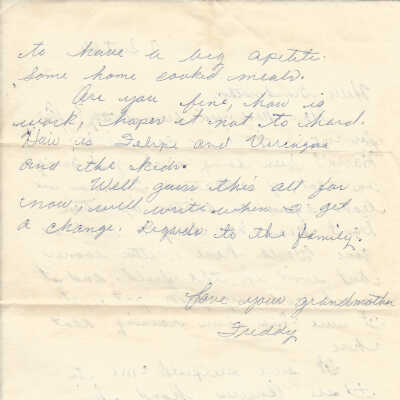 to have a big apetite.
Some home cooked meals.
Are you fine, how is
work, hopes it not to hard.
How is Felipe and
and the kids.
Well guess this all for
now, will write when I get
a change. Regards to the family.
Love your grandmother
Freddy